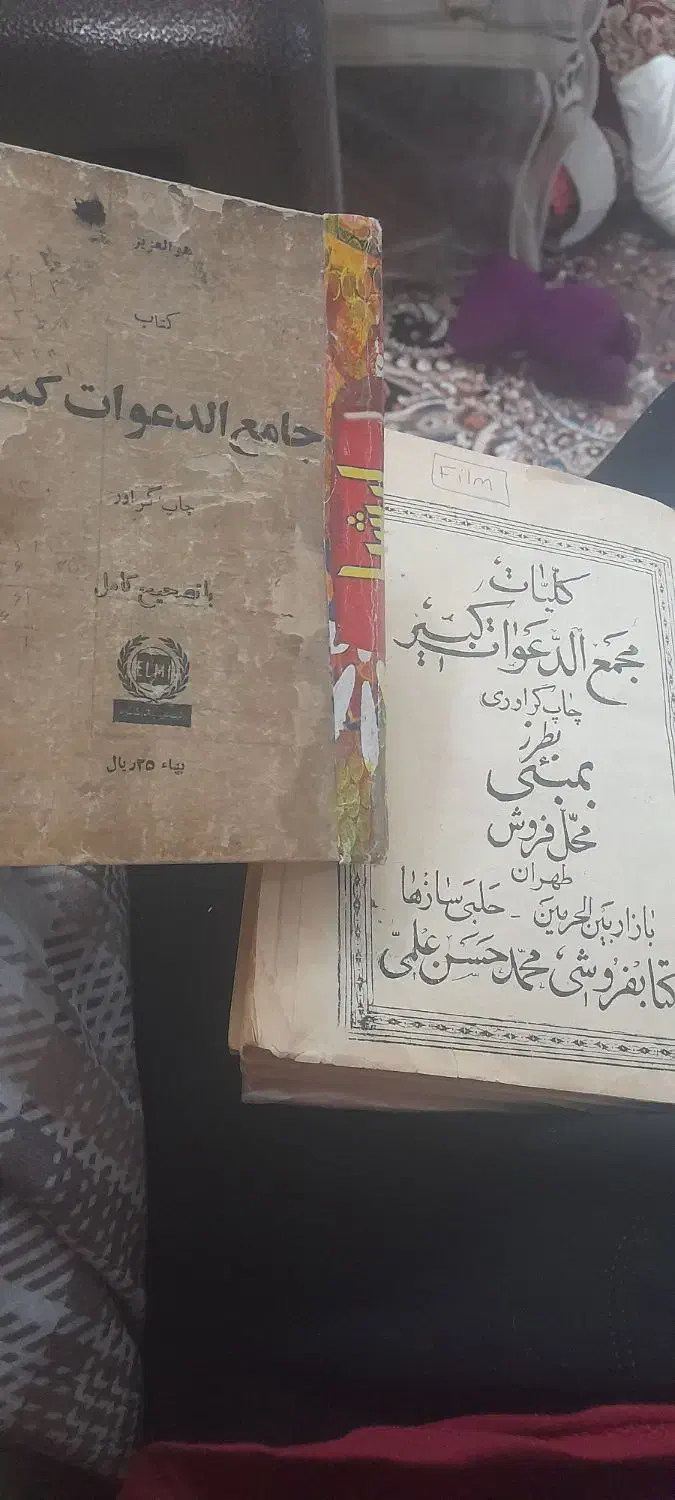 هوالعزیز
کتاب
جامع الدعوات
چاپ گراور
با تصحیح کامل
ELMI
بهاء ۲۵ ریال
Film
کلیات
مجمع الدعوات کبیر
چاپ گراوری
بطرز
بمبئی
محل فروش
طهران
بازار بین الحرمین - حلبی سازها
کتابفروشی محمد حسن علمی